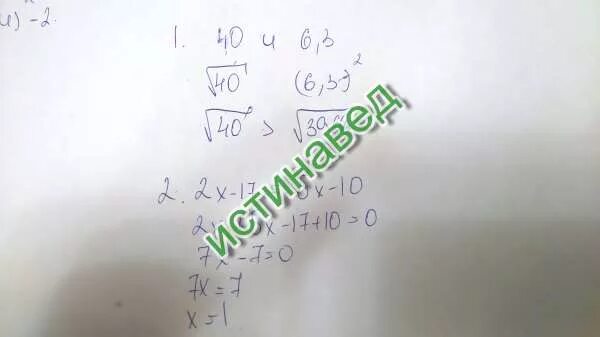 и) -2.
1. 40 и 6,3
√40 (6,3)²
√40 > √39
2. 2x-17 x-10
2x x-17+10=0
7x-7=0
7x=7
x=1
истинавед